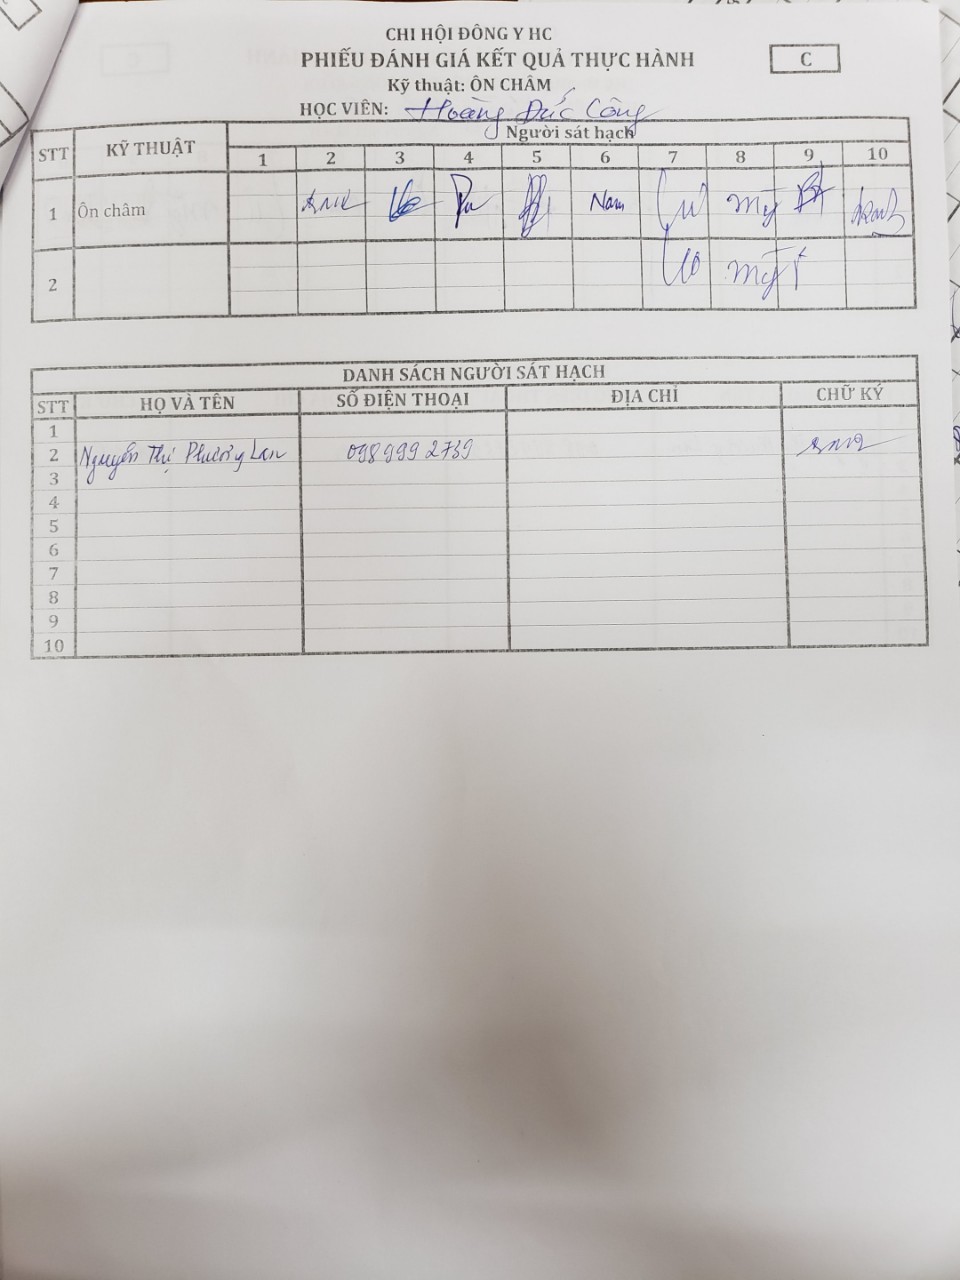 CHI HỘI ĐÔNG Y HC
PHIẾU ĐÁNH GIÁ KẾT QUẢ THỰC HÀNH
C
Kỹ thuật: ÔN CHÂM
HỌC VIÊN: Hoàng Đức Công
STT KỸ THUẬT Người sát hạch
1 2 3 4 5 6 7 8 9 10
1 Ôn châm Nam Mỹ
2 Mỹ
DANH SÁCH NGƯỜI SÁT HẠCH
STT HỌ VÀ TÊN SỐ ĐIỆN THOẠI ĐỊA CHỈ CHỮ KÝ
1
2 Nguyễn Thị Phương Lan 098 999 2739
3
4
5
6
7
8
9
10